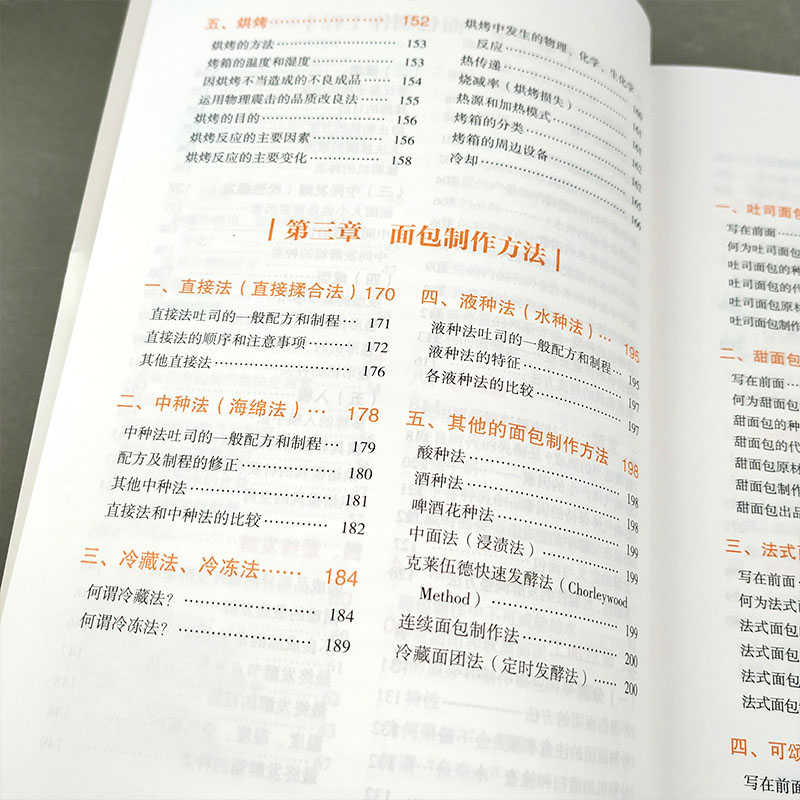 五、烘烤 ………… 152
烘烤的方法 ………… 153
烤箱的温度和湿度 ………… 153
因烘烤不当造成的不良成品 ………… 154
运用物理震击的品质改良法 ………… 155
烘烤的目的 ………… 156
烘烤反应的主要因素 ………… 156
烘烤反应的主要变化 ………… 158
烘烤中发生的物理、化学、生化学
反应 ………… 160
热传递 ………… 161
烧减率（烘烤损失） ………… 161
热源和加热模式 ………… 161
烤箱的分类 ………… 162
烤箱的周边设备 ………… 165
冷却 ………… 166
第三章 面包制作方法
一、直接法（直接揉合法）170
直接法吐司的一般配方和制程 … 171
直接法的顺序和注意事项 ………… 172
其他直接法 ………… 176
二、中种法（海绵法）… 178
中种法吐司的一般配方和制程 … 179
配方及制程的修正 ………… 180
其他中种法 ………… 181
直接法和中种法的比较 ………… 182
三、冷藏法、冷冻法…… 184
何谓冷藏法？ ………… 184
何谓冷冻法？ ………… 189
四、液种法（水种法）… 195
液种法吐司的一般配方和制程… 195
液种法的特征 ………… 197
各液种法的比较 ………… 197
五、其他的面包制作方法 198
酸种法 ………… 198
酒种法 ………… 198
啤酒花种法 ………… 199
中面法（浸渍法） ………… 199
克莱伍德快速发酵法（Chorleywood
Method） ………… 199
连续面包制作法 ………… 200
冷藏面团法（定时发酵法） … 200
一、吐司面包
写在前面
何为吐司面包
吐司面包的种
吐司面包的代
吐司面包原材
吐司面包制作
二、甜面包
写在前面
何为甜面包
甜面包的种
甜面包的代
甜面包原材
甜面包制作
甜面包出品
三、法式面
写在前面
何为法式面
法式面包
法式面包
法式面包
法式面包
四、可颂
写在前面